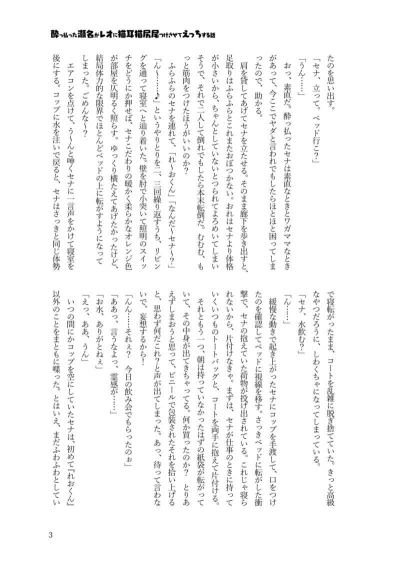 酔っ払った瀬名がレオに猫耳猫尻尾つけさせてえっちする話
たのを思い出す。
「セナ、立って。ベッド行こ？」
「うん……」
おっ、素直だ。酔っ払ったセナは素直なときとワガママなとき
があって、今ここでヤダと言われでもしたらほとほと困ってしま
ったので、助かる。
肩を貸してあげてセナを立たせる。そのまま廊下を歩き出すと、
足取りはふらふらとこれまたおぼつかない。おれはセナより体格
が小さいから、ちゃんとしていないとつられてよろめいてしまい
そうで、それで二人して倒れでもしたら本末転倒だ。むむむ、も
っと筋肉をつけたほうがいいのか？
ふらふらのセナを連れて、「れ〜おくん」「なんだ〜セナ〜？」
「……♪」というやりとりを二、三回繰り返すうち、リビン
グを通って寝室へと辿り着いた。壁を肘で小突いて照明のスイッ
チをどうにか押せば、セナこだわりの暖かく柔らかなオレンジ色
が部屋を仄明るく照らす。ゆっくり横たえてあげたかったけど、
結局体力的な限界でほとんどベッドの上に転がすようになって
しまった。ごめんな〜？
エアコンを点けて、う〜んと呻くセナに一言声をかけて寝室を
後にする。コップに水を注いで戻ると、セナはさっきと同じ体勢
で寝転がったまま、コートを乱雑に脱ぎ捨てていた。きっと高級
なやつだろうに、しわくちゃになってしまっている。
「セナ、水飲む？」
「ん……」
緩慢な動きで起き上がったセナにコップを手渡して、口をつけ
たのを確認してベッドに視線を移す。さっきベッドに転がした衝
撃で、セナの抱えていた荷物が投げ出されている。これじゃ寝ら
れないから、片付けなきゃ。まずは、セナが仕事のときに持って
いくいつものトートバッグと、コートを両手に抱えて片付ける。
それともう一つ、朝は持っていなかったはずの紙袋が転がって
いて、その中身が出てきちゃってる。何か買ったのか？　とりあ
えずしまおうと思って、ビニールで包装されたそれを拾い上げる
と、思わず何だこれ？と声が出てしまった。あっ、待って言わな
いで、妄想するから！
「んん……それぇ？　今日の飲み会でもらったのぉ」
「ああっ、言うなよっ、霊感が……」
「お水、ありがとねぇ」
「えっ、ああ、うん」
いつの間にかコップを空にしていたセナは、初めて『れおくん』
以外のことをまともに喋った。とはいえ、まだふわふわとしてい
3